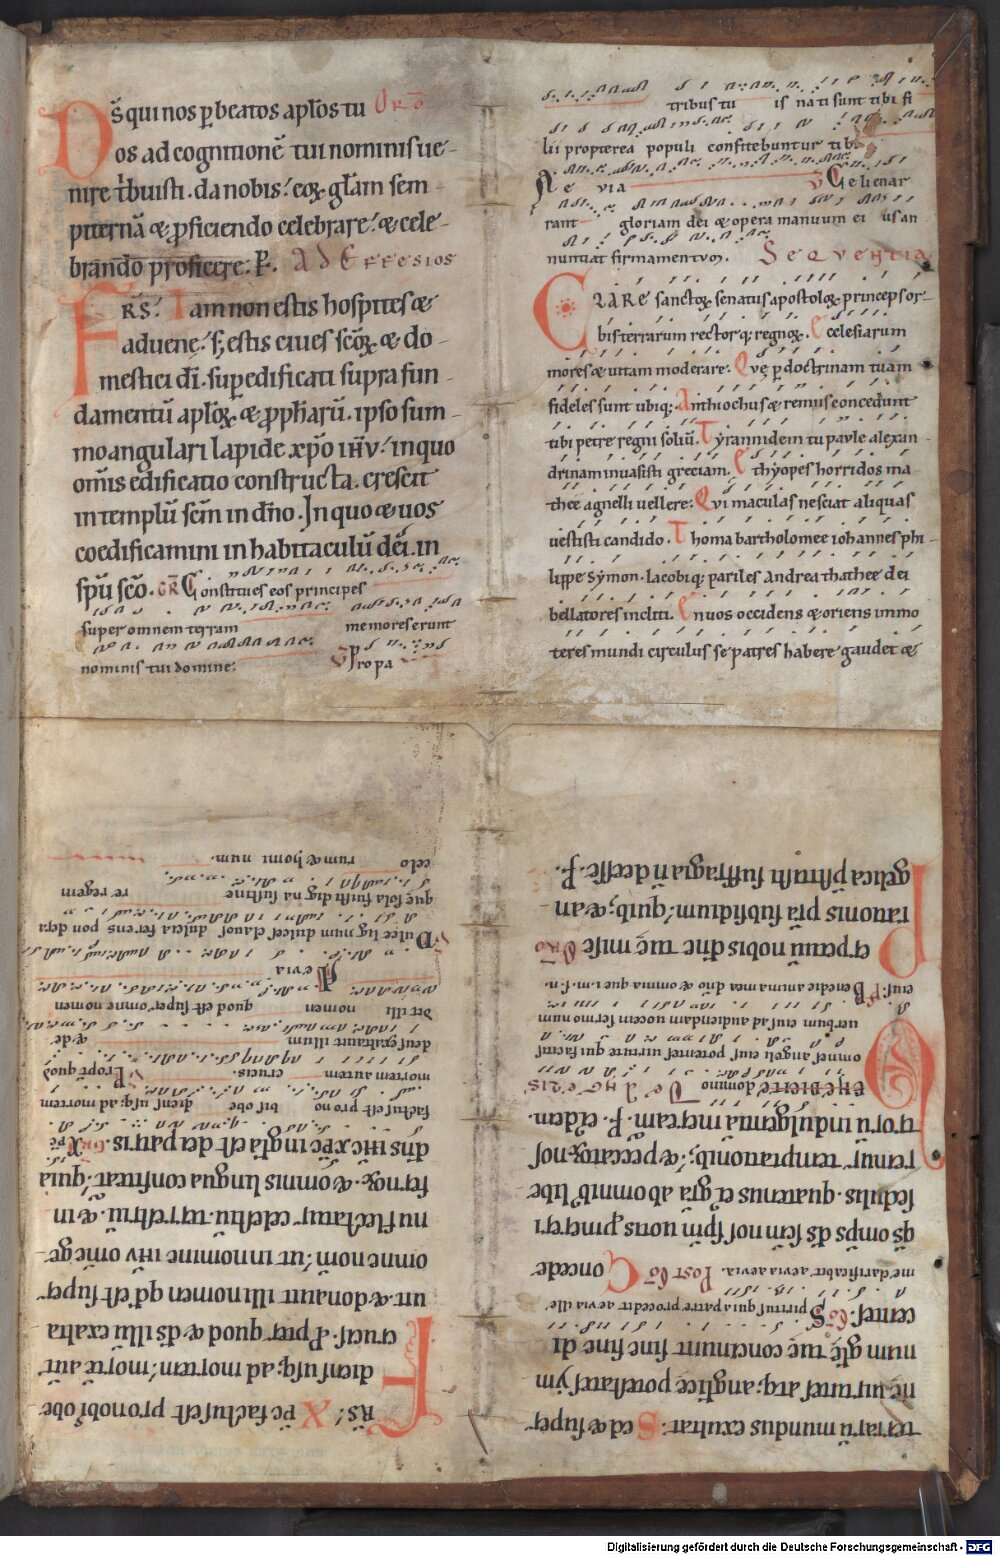 D̄s qui nos p beatos apl̄os tu ORO
os ad cognitionē tui nominis ue-
nire tribuisti. da nobis eoꝝ gl̄am sem-
piternā & proficiendo celebrare & cele-
brando proficere. P. AD EFFESIOS
FRS̄. Iam non estis hospites &
aduene. s; estis ciues sc̄oꝝ & do-
mestici dī. superedificati supra fun-
damentū apl̄oꝝ & prophetarū. ipso sum-
mo angulari lapide xp̄o ihv̄. in quo
om̄is edificatio constructa. crescit
in templū sc̄m in dn̄o. In quo & uos
coedificamini in habitaculū dei. in
sp̄u sc̄o. GR̄ Constitues eos principes
super omnem terram memores erunt
nominis tui domine. V Pro pa
tribus tu is nati sunt tibi fi
lii propterea populi confitebuntur tibi
Ae via V Celi enar
rant gloriam dei & opera manuum ei us an
nuntiat firmamentvm. SEQVENTIA
CLARE sanctoꝝ senatus apostoloꝝ princeps or-
bis terrarum rectorq; regnoꝝ. Ecclesiarum
mores & uitam moderare. Qvę p doctrinam tuam
fideles sunt ubiq;. Anthiochus & remus concedunt
tibi petre regni soliū. Tyrannidem tu pavle alexan-
drinam inuasisti greciam. Ethyopes horridos ma-
thee agnelli uellere. Qvi maculas nesciat aliquas
uestisti candido. Thoma bartholomee iohannes phi-
lippe symon. Iacobiq; pariles Andrea thathee dei
bellatores incliti. En uos occidens & oriens immo
teres mundi circulus se patres habere gaudet &
FRS̄. Xpc̄ factus est pro nobis obe-
diens usq; ad mortem. mortē aut
crucis. Ppter quod & ds̄ illū exalta-
uit. & donauit illi nomen qd̄ est super
omne nom̄. ut in nomine ihv̄ om̄e ge-
nu flectatur. celestiū. terrestriū. & in-
fernoꝝ. & omnis lingua confiteat. quia
dn̄s ihc̄ xpc̄ in gl̄a est dei patris. GR̄. Xpc̄
factus est pro no bis obe diens usq; ad mortem
mortem autem crucis. V Propt quod
& de deus exaltauit illum
dit illi nomen quod est super omne nomen
Ae via
V Dulce lignum dulces clauos dulcia ferens pondera
quę sola fuisti digna sustine re regem
celo rum & homi num.
terrarū mundus exultat. Sed & super-
nę uirtutes atq; anglice potestates ym-
num glę tuę concinunt sine fine di-
centes. CŌ. Spiritus qui a patre procedit aevia ille
me clarificabit aevia aevia. Post CŌ Concede
qs̄ omps̄ ds̄ sc̄m nos sp̄m uotis pmereri
sedulis. quatenus ei gr̄a ab omnib; libe-
remur temptationib; & peccatoꝝ nos-
trorū indulgentiā mereamur. P. eidem.
De Angelis
BENEDICITE domino
omnes angeli eius potentes uirtute qui facitis
uerbum eius ad audiendam uocem sermonum
eius. Ps. Benedic anima mea dn̄o & omnia que i. m. s. n.
Perpetuū nobis dn̄e tuę mise- ORŌ
rationis pr̄a subsidium. quib; & an-
gelica prestitisti suffragia n̄ deesse. P.
Digitalisierung gefördert durch die Deutsche Forschungsgemeinschaft - DFG